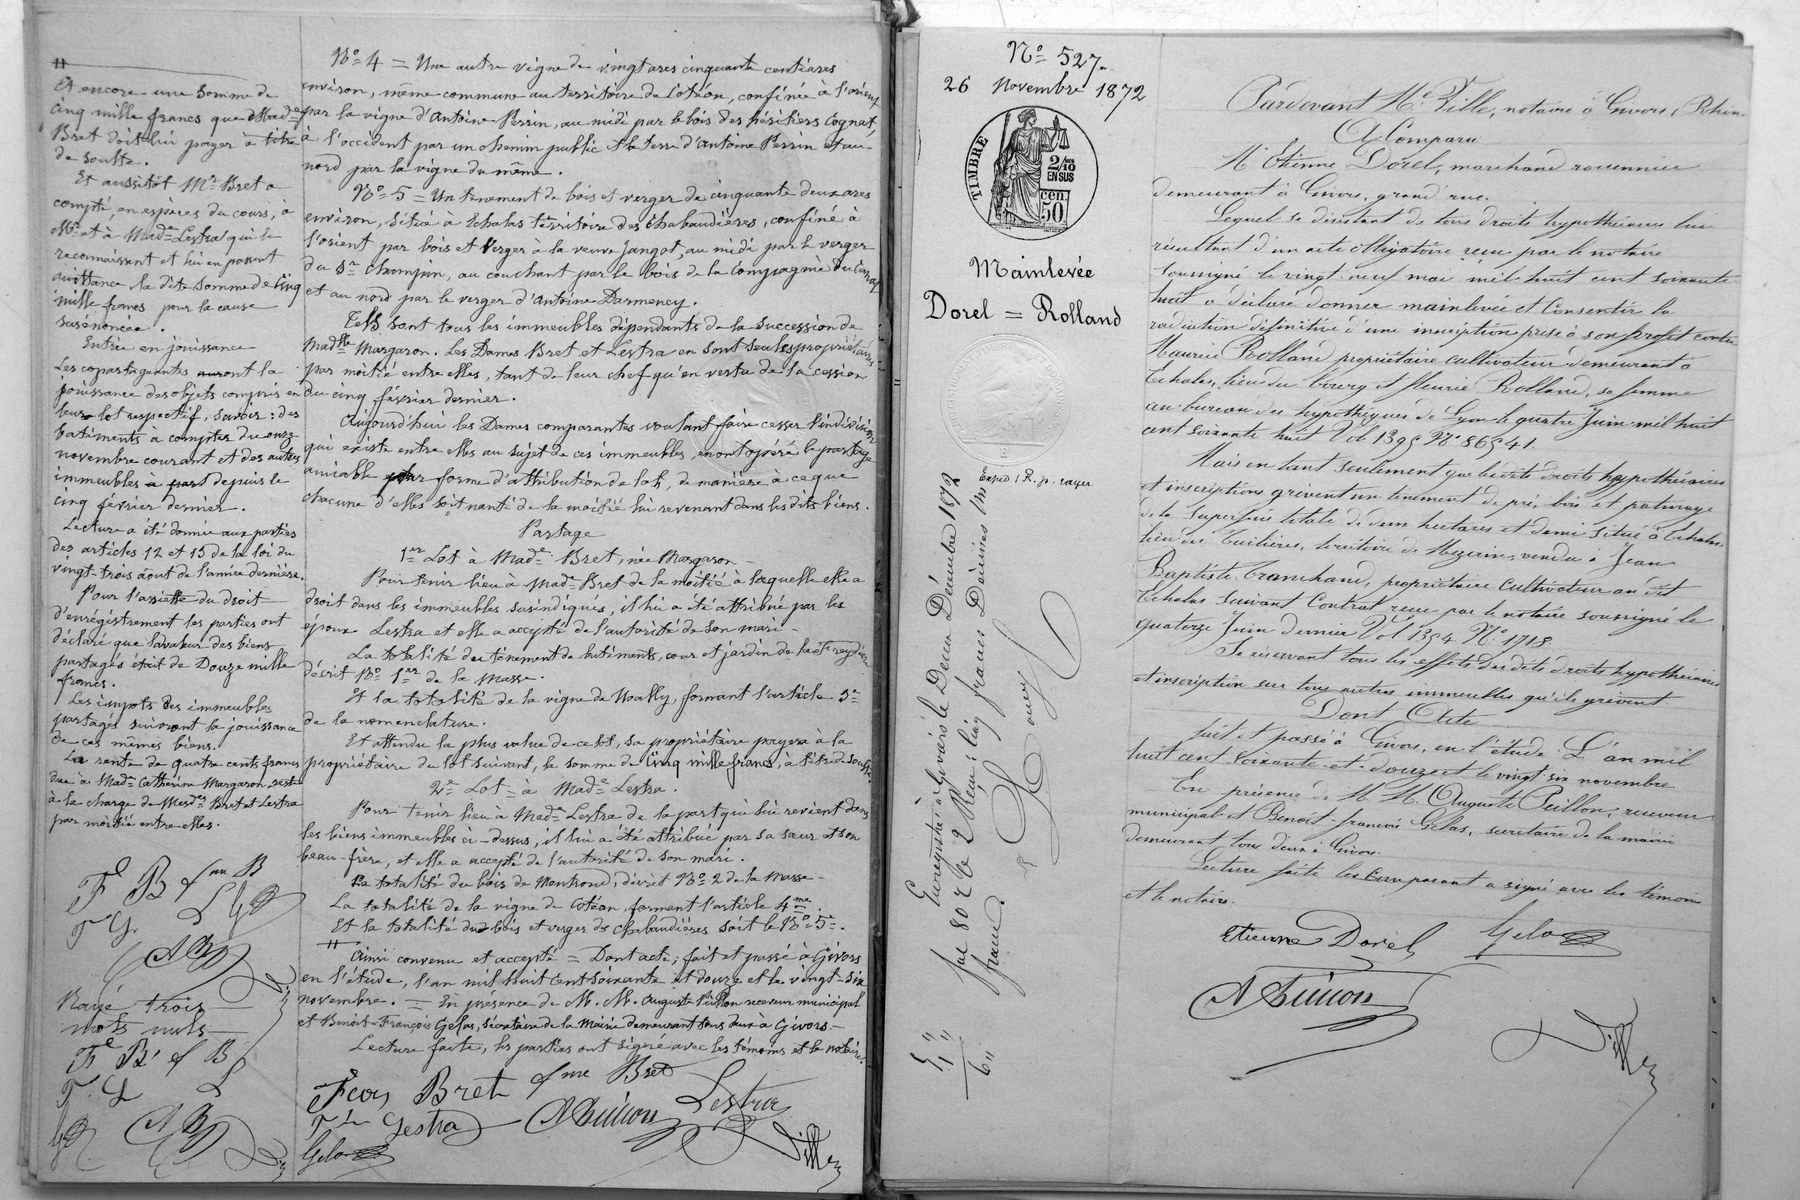 Et encore une somme de
cinq mille francs que Made
Bret doit lui payer à titre
de soulte.
Et aussitôt Mr Bret a
compté, en espèces du cours, à
Mr et à Made Lestra qui le
reconnaissent et lui en passent
quittance la dite somme de cinq
mille francs pour la cause
susénoncée.
Entrée en jouissance
Les copartageantes auront la
jouissance des objets compris en
leur lot respectif, savoir : des
batiments à compter du onze
novembre courant et des autres
immeubles à part depuis le
cinq février dernier.
Lecture a été donnée aux parties
des articles 12 et 13 de la loi du
vingt-trois août de l'année dernière.
Pour l'assiette du droit
d'enrégistrement les parties ont
déclaré que la valeur des biens
partagés était de Douze mille
francs.
Les impots des immeubles
partagés suivront la jouissance
de ces mêmes biens.
La rente de quatre cents francs
due à Made Catherine Margaron, reste
à la charge de Mesdes Bret et Lestra
par moitié entre elles.
Rayé trois
mots nuls
No 4 = Une autre vigne de vingt ares cinquante centiares
environ, même commune au territoire de Cotéon, confinée à l'orient
par la vigne d'Antoine Perrin, au midi par le bois des héritiers Cognat,
à l'occident par un chemin public et la terre d'Antoine Perrin et au
nord par la vigne du même.
No 5 = Un tènement de bois et verger de cinquante deux ares
environ, situé à Echalas territoire des Chabaudières, confiné à
l'orient par bois et verger à la veuve Jangot, au midi par le verger
du Sr Champin, au couchant par le bois de la Compagnie du Canal
et au nord par le verger d'Antoine Darmency.
Tels sont tous les immeubles dépendants de la succession de
Madlle Margaron. Les Dames Bret et Lestra en sont seules propriétaires
par moitié entre elles, tant de leur chef qu'en vertu de la cession
du cinq février dernier.
Aujourd'hui les Dames comparantes voulant faire cesser l'indivision
qui existe entre elles au sujet de ces immeubles, en ont opéré le partage
amiable pour forme d'attribution de lots, de manière à ce que
chacune d'elles soit nantie de la moitié lui revenant dans les dits biens.
Partage
1er Lot à Made Bret, née Margaron
Pour tenir lieu à Made Bret de la moitié à laquelle elle a
droit dans les immeubles susindiqués, il lui a été attribué par les
époux Lestra et elle a accepté de l'autorité de son mari
La totalité du tènement de batiments, cour et jardin
décrit No 1er de la Masse.
Et la totalité de la vigne de Wally, formant l'article 3e
de la nomenclature.
Et attendu la plus value de ce lot, sa propriétaire payera à la
propriétaire du lot suivant, la somme de Cinq mille francs, à titre de soulte.
2e Lot à Made Lestra.
Pour tenir lieu à Made Lestra de la part qui lui revient dans
les biens immeubles ci-dessus, il lui a été attribué par sa sœur et son
beau-frère, et elle a accepté de l'autorité de son mari.
La totalité du bois de Montrond, décrit No 2 de la masse
La totalité de la vigne de Cotéon, formant l'article 4me
Et la totalité du bois et verger des Chabaudières soit le No 5e.
Ainsi convenu et accepté = Dont acte ; fait et passé à Givors
en l'étude, l'an mil huit cent soixante et douze et le vingt-six
novembre. = En présence de M. M. Auguste Peillon receveur municipal
et Benoit-François Gelas, secrétaire de la Mairie demeurant tous deux à Givors.
Lecture faite, les parties ont signé avec les témoins et le notaire.
Fcois Bret fme Bret Lestra
Lestra A Peillon
Gelas Ville
No 527.
26 Novembre 1872
TIMBRE
2/10
EN SUS
cen.
50
Mainlevée
Dorel = Rolland
Enregistré à Givors le Deux Décembre 1872
fol. 80 r. C. 2 Reçu : cinq francs Décimes un
franc.
Pardevant Me Ville, notaire à Givors (Rhône
A Comparu
Mr Etienne Dorel, marchand rouennier
demeurant à Givors, grand'rue.
Lequel se désistant de tous droits hypothécaires lui
résultant d'un acte obligatoire reçu par le notaire
soussigné le vingt-neuf mai mil huit cent soixante
huit a déclaré donner mainlevée et Consentir la
radiation définitive d'une inscription prise à son profit contre
Maurice Rolland propriétaire cultivateur demeurant à
Echalas, lieu du bourg et fleurie Rolland, sa femme
au bureau des hypothèques de Lyon le quatre Juin mil huit
cent soixante huit Vol. 1395 No 86541.
Mais en tant seulement que les dits droits hypothécaires
et inscriptions grèvent un tènement de pré, bois et paturage
de la superficie totale de deux hectares et demi situé à Echalas
lieu des Tuilières, territoire de Mezerin, vendu à Jean
Baptiste Tranchand, propriétaire cultivateur au dit
Echalas suivant Contrat reçu par le notaire soussigné le
quatorze Juin dernier Vol. 1354 No 1718.
Se réservant tous les effets des dits droits hypothécaires
et inscription sur tous autres immeubles qu'ils grèvent.
Dont Acte
fait et passé à Givors, en l'étude. L'an mil
huit cent soixante-et-douze et le vingt-six novembre
En présence de M. M. Auguste Peillon, receveur
municipal et Benoit-françois Gelas, secrétaire de la mairie
demeurant tous deux à Givors.
Lecture faite le Comparant a signé avec les témoins
et le notaire.
Etienne Dorel Gelas
A Peillon
Ville